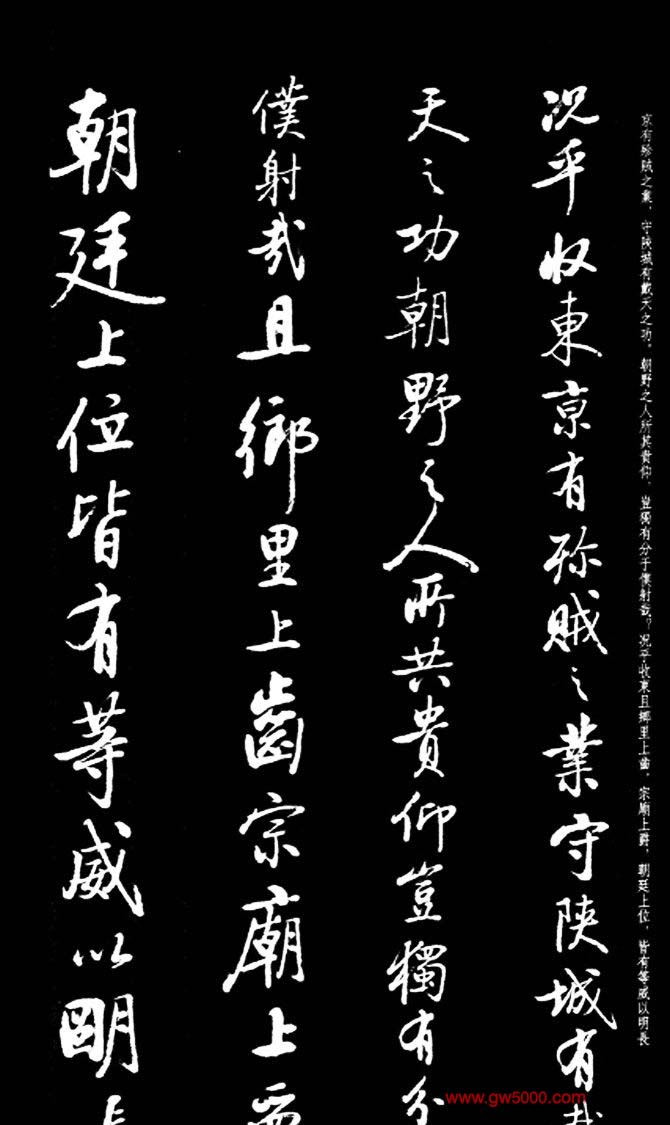 京有殄賊之業，守陝城有戴天之功，朝野之人所其貴仰，豈獨有分于僕射哉？况乎收東且鄉里上齒，宗廟上爵，朝廷上位，皆有等威以明長
况乎收東京有殄賊之業守陝城有
天之功朝野之人所共貴仰豈獨有分
僕射哉且鄉里上齒宗廟上
朝廷上位皆有等威以明
www.gw5000.com